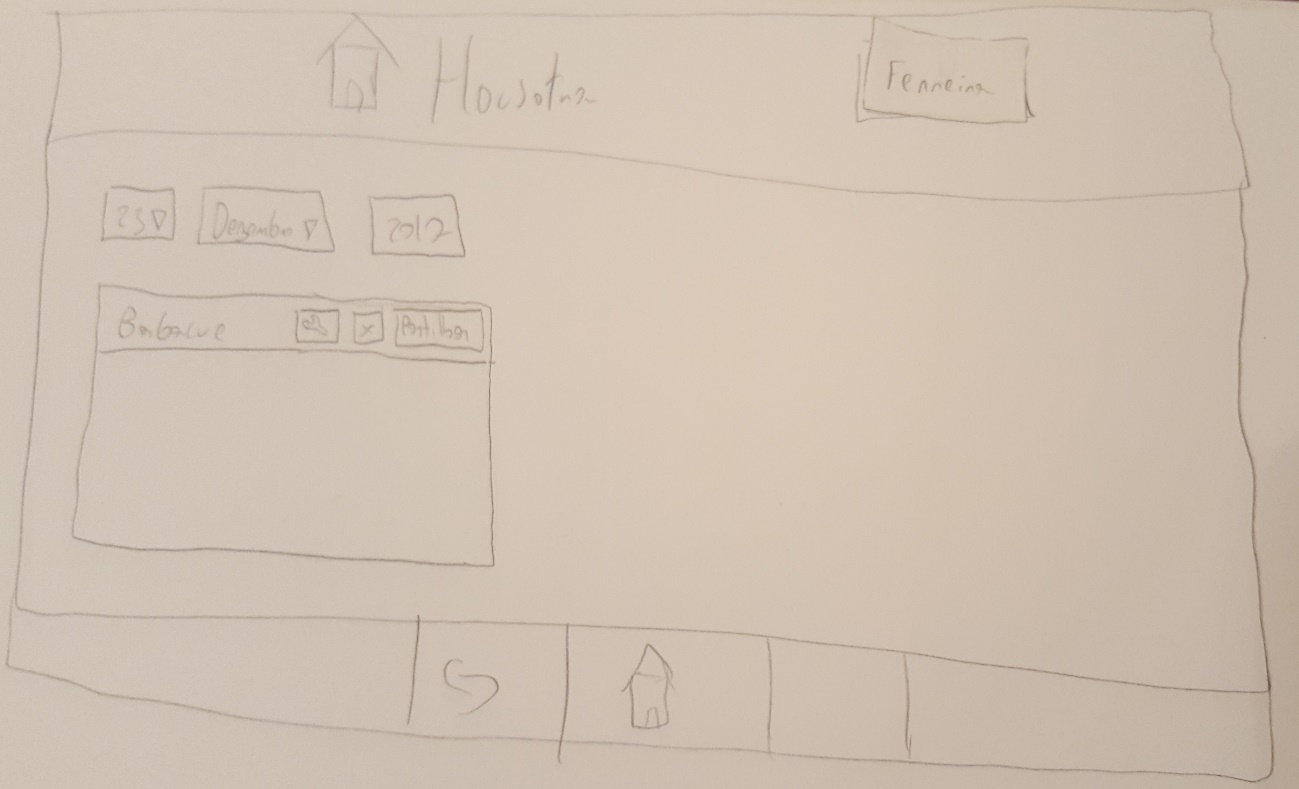 Housotra
Ferreira
23 Dezembro 2012
Barbacue X Partilhar